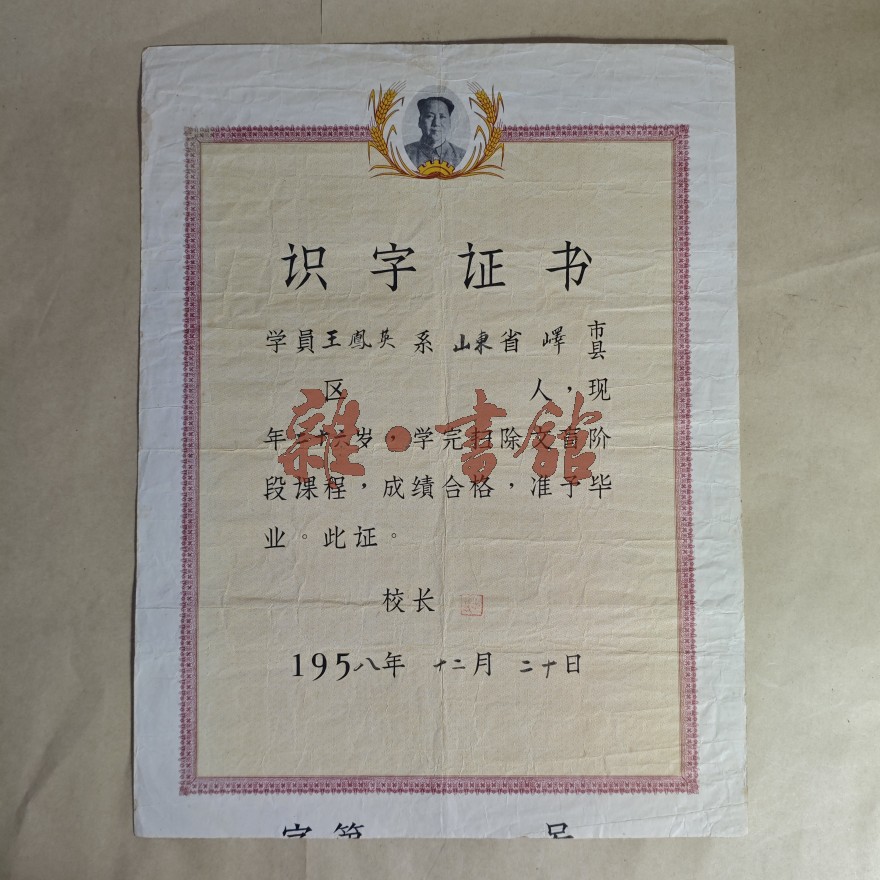 识字证书
学員王鳳英系 山東省 嶧 市县
区 人，现
年三十六岁，学完扫除文盲阶
段课程，成绩合格，准予毕
业。此证。
雜·書館
校长
195八年 十二月 二十日
字第 号